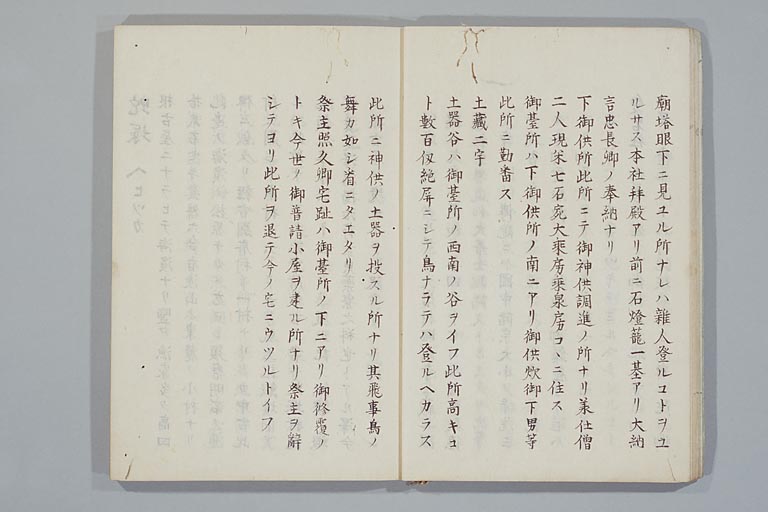 廟塔眼下ニ見ユル所ナレハ雜人登ルコトヲユ
ルサス本社拜殿アリ前ニ石燈籠一基アリ大納
言忠長卿ノ奉納ナリ
下御供所此所ニテ御神供調進ノ所ナリ兼仕僧
二人現米七石宛大乘房乘泉房コヽニ住ス
御臺所ハ下御供所ノ南ニアリ御供炊御下男等
此所ニ勤番ス
土藏二宇
土器谷ハ御臺所ノ西南ノ谷ヲイフ此所高キコ
ト數百仭絶屏ニシテ鳥ナラテハ登ルヘカラス
此所ニ神供ノ土器ヲ投スル所ナリ其飛事鳥ノ
舞カ如シ省ニタエタリ
祭主照久卿宅趾ハ御臺所ノ下ニアリ御修覆ノ
トキ今世ノ御普請小屋ヲ建ル所ナリ祭主ヲ辭
シテヨリ此所ヲ退テ今ノ宅ニウツルトイフ